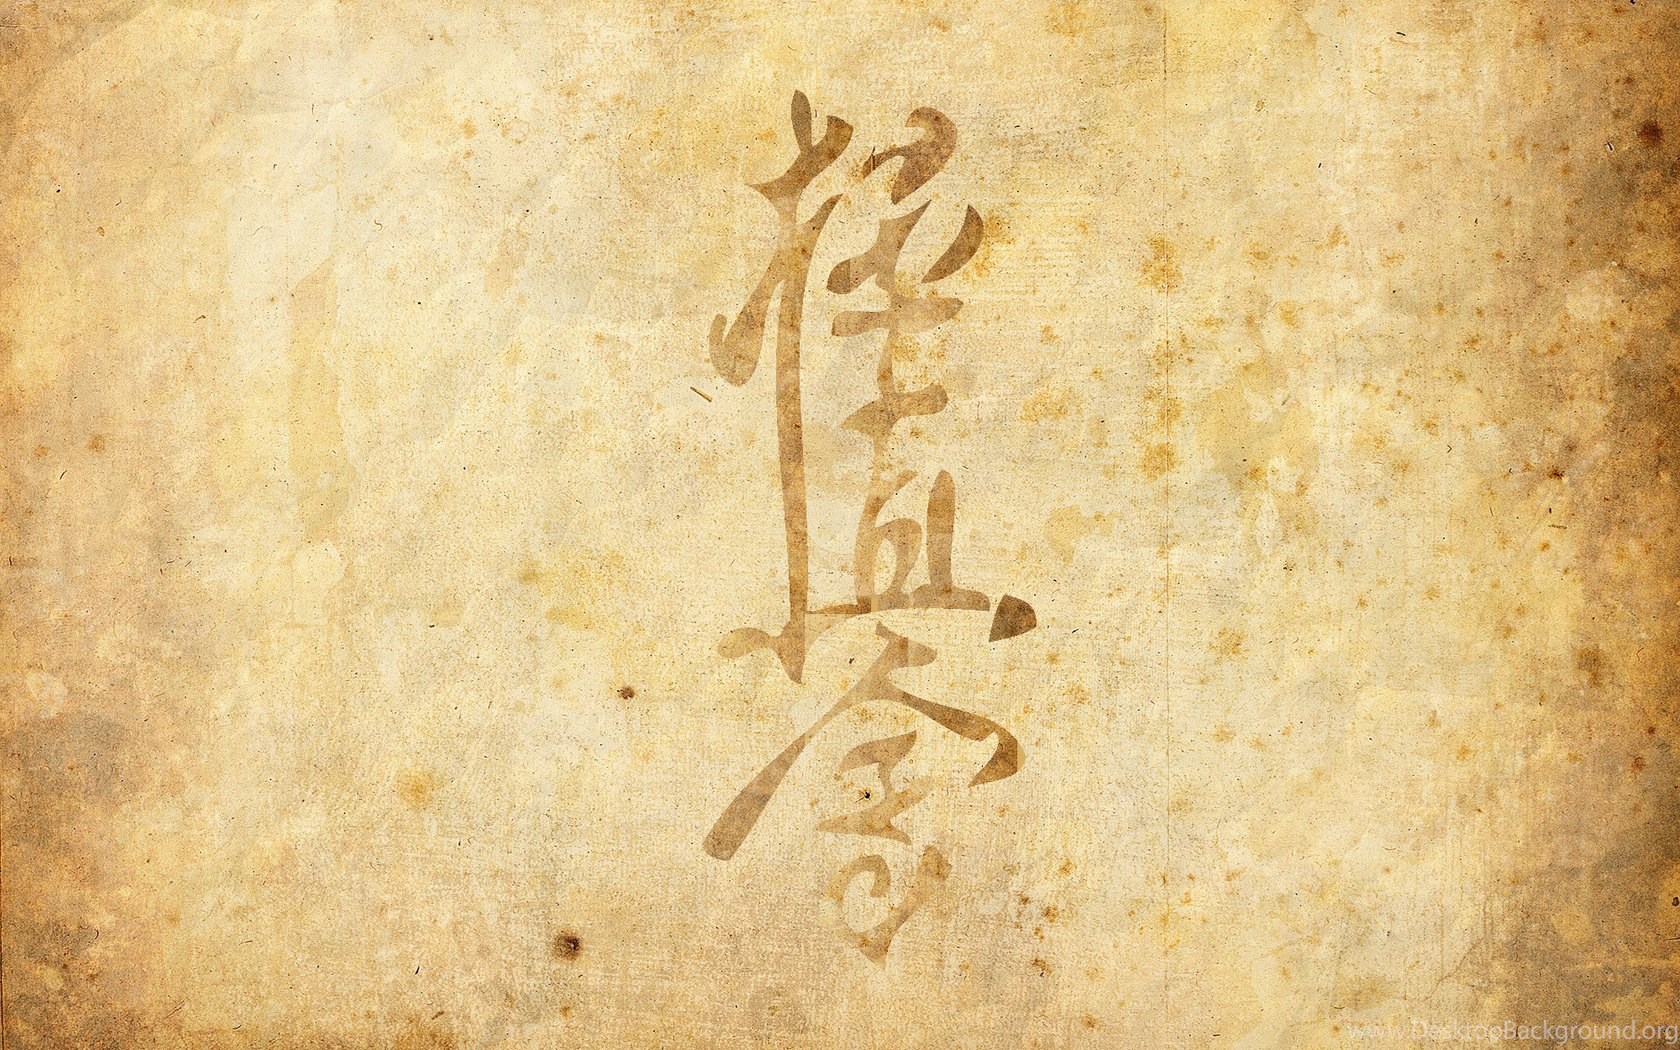 極真会
www.DesktopBackground.org